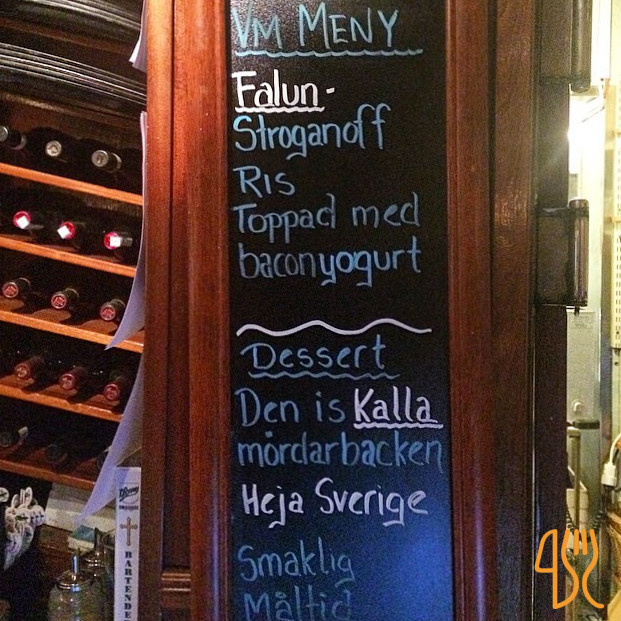 VM MENY
Falun-
Stroganoff
RIS
Toppad med
baconyogurt
Dessert
Den is Kalla
mördarbacken
Heja Sverige
Smaklig
Måltid
BARTENDE